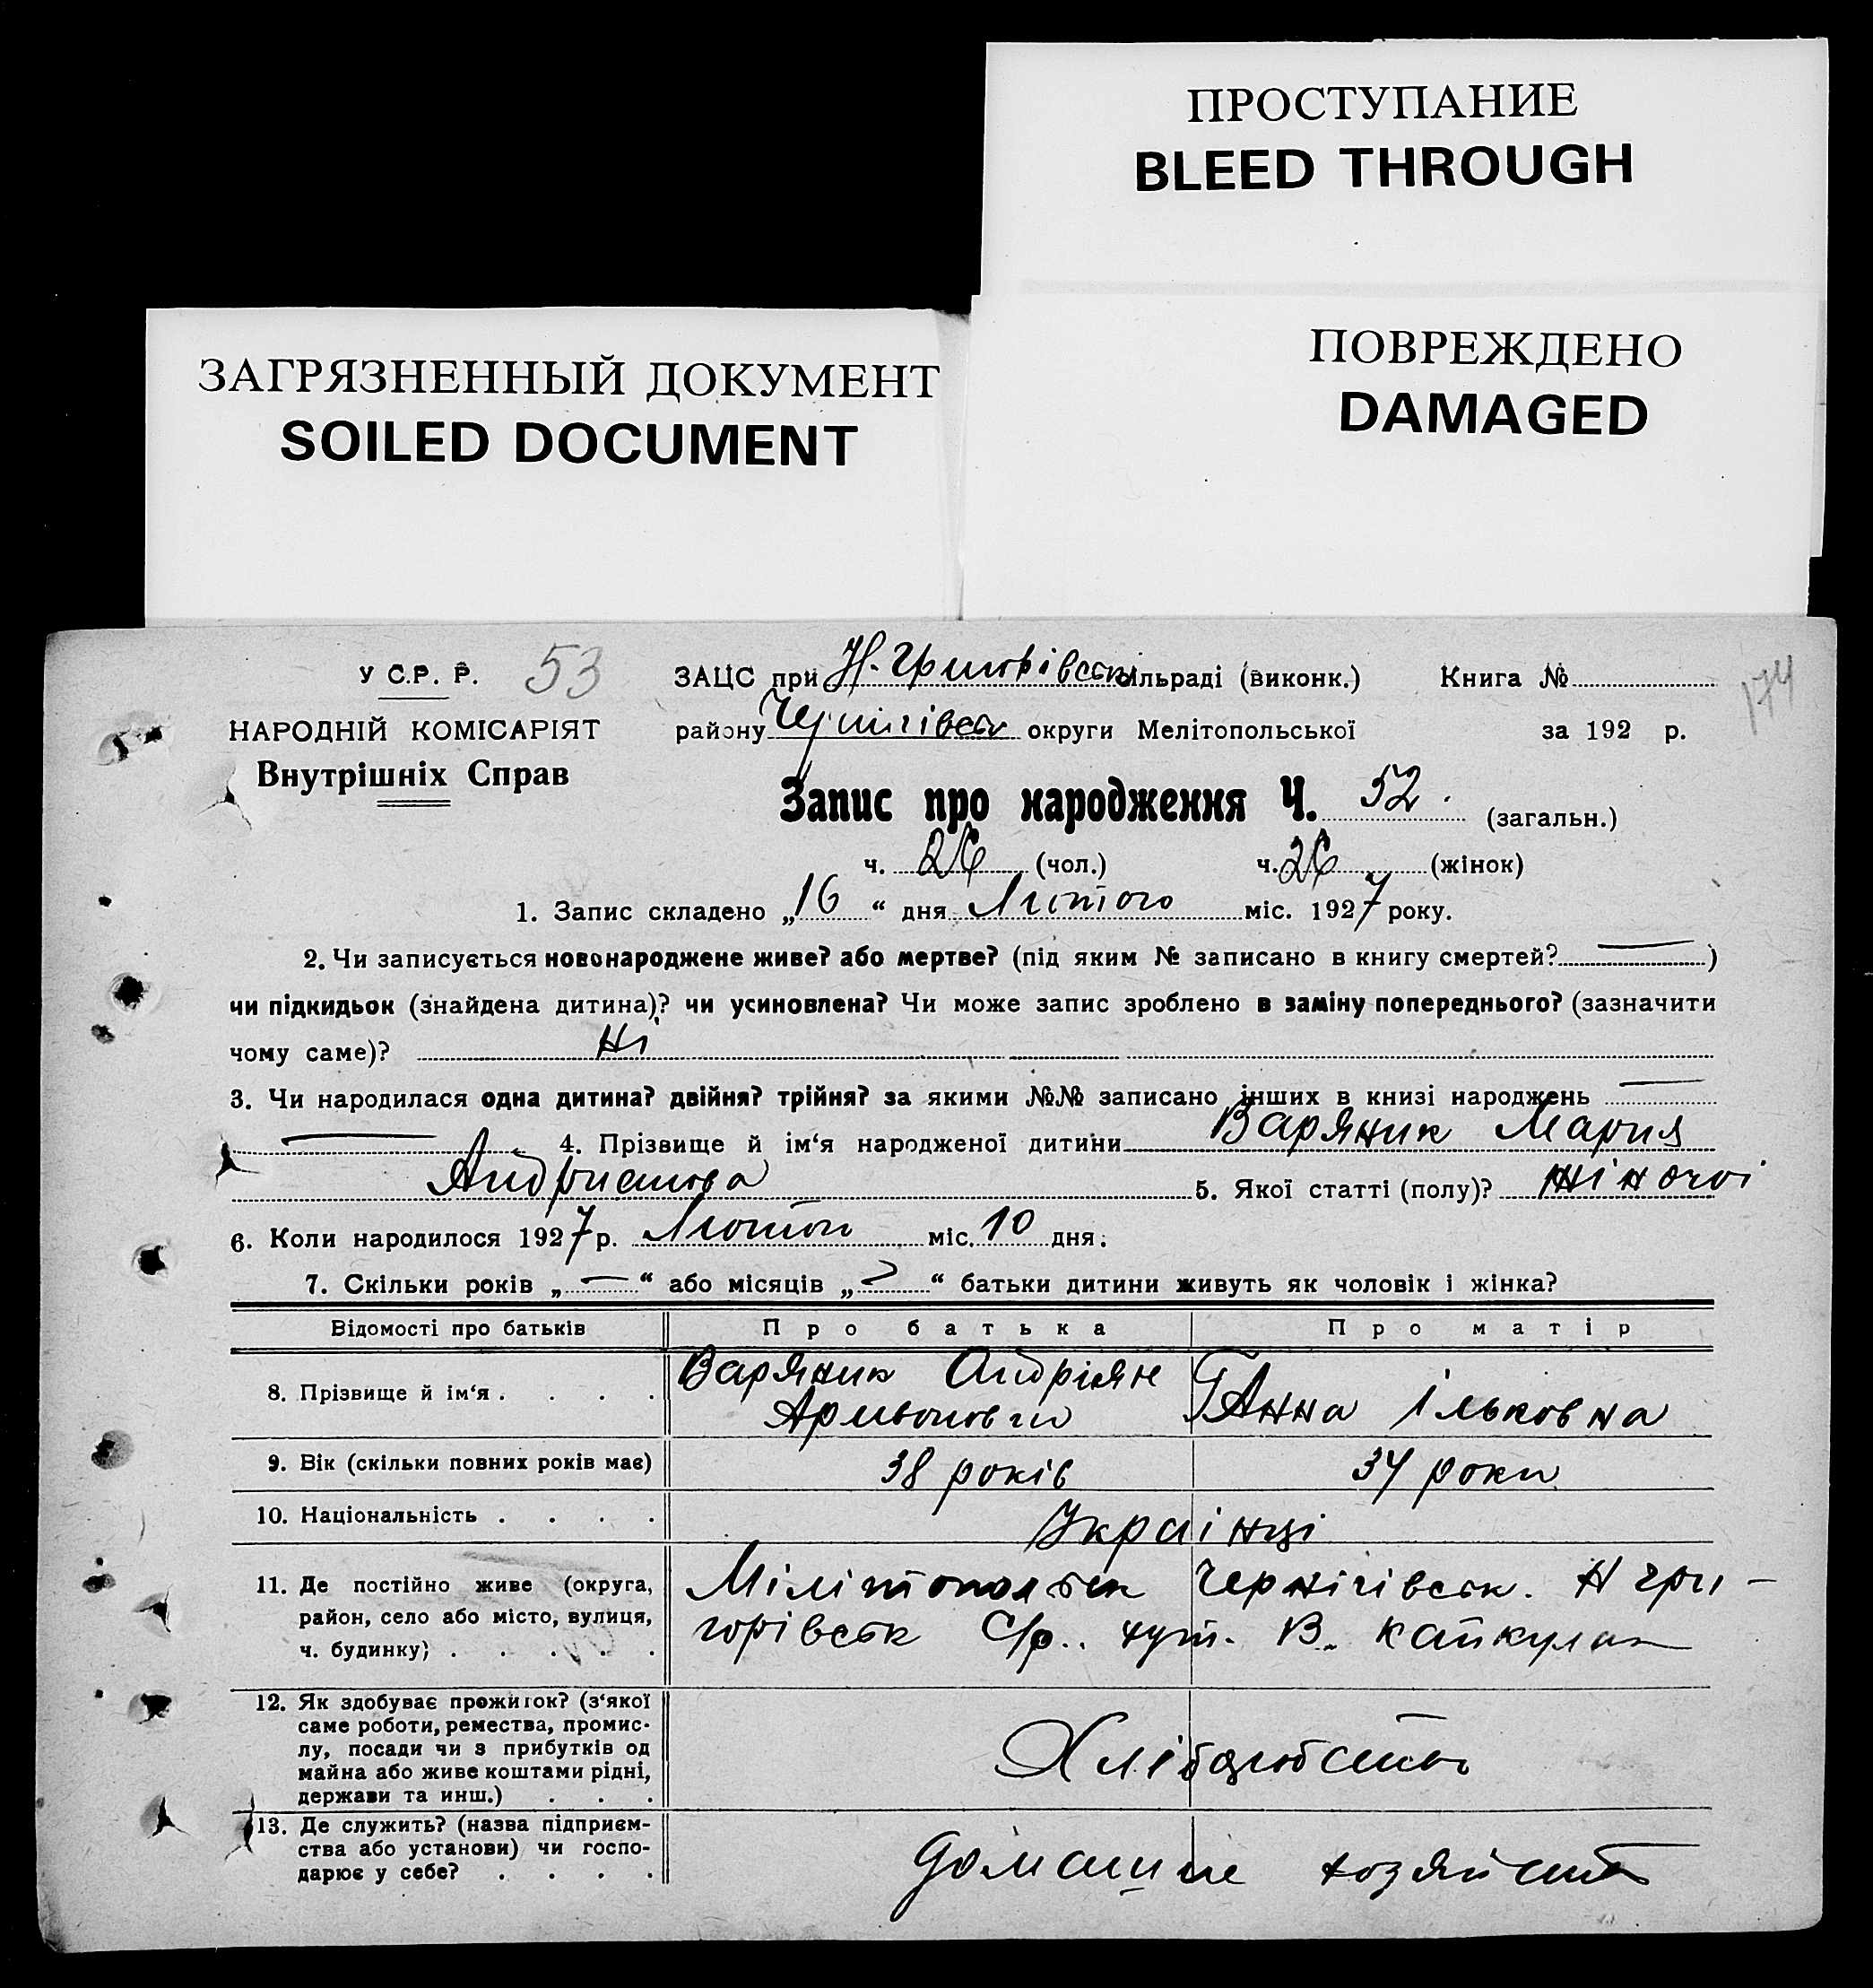 ПРОСТУПАНИЕ
BLEED THROUGH
ПОВРЕЖДЕНО
DAMAGED
ЗАГРЯЗНЕННЫЙ ДОКУМЕНТ
SOILED DOCUMENT
У С.Р. Р. 53
НАРОДНІЙ КОМІСАРІЯТ
Внутрішніх Справ
ЗАЦС при сільраді (виконк.) Книга №
174
району округи Мелітопольської за 192 р.
Запис про народження Ч. 52. (загальн.)
ч. 26 (чол.) ч. 26 (жінок)
1. Запис складено „16“ дня Лютого міс. 1927 року.
2. Чи записується новонароджене живе? або мертве? (під яким № записано в книгу смертей? —)
чи підкидьок (знайдена дитина)? чи усиновлена? Чи може запис зроблено в заміну попереднього? (зазначити
чому саме)? Ні
3. Чи народилася одна дитина? двійня? трійня? за якими №№ записано інших в книзі народжень —
— 4. Прізвище й ім‘я народженої дитини Варяник Мария
5. Якої статті (полу)? жіночоі
6. Коли народилося 1927 р. міс. 10 дня.
7. Скільки років „—“ або місяців „ “ батьки дитини живуть як чоловік і жінка?
Відомості про батьків Про батька Про матір
8. Прізвище й ім‘я . . . . Варяник Андріян
Ганна Ільковна
9. Вік (скільки повних років має) 38 років 34 роки
10. Національність . . . . Украінці
11. Де постійно живе (округа,
район, село або місто, вулиця,
ч. будинку) . . . . .
Мілітопольськ Чернігівськ. Н Гри-
горівськ С/р. хут. В.
12. Як здобуває прожиток? (з‘якої
саме роботи, ремества, промис-
лу, посади чи з прибутків од
майна або живе коштами рідні,
держави та инш.) . . .
13. Де служить? (назва підприєм-
ства або установи) чи госпо-
дарює у себе? . . . .